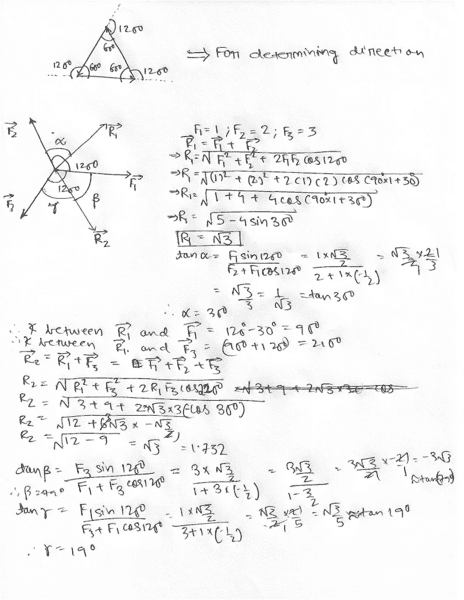 120°
60°
120° 60° 60° 120°
⇒ For determining direction
F₁=1 ; F₂=2 ; F₃=3
R⃗₁ = F⃗₁ + F⃗₂
→R₁=√F₁² + F₂² + 2F₁F₂ cos120
→R₁=√(1)² + (2)² + 2(1)(2) cos(90×1+30)
→R₁=√1+4 + 4cos(90×1+30°)
→R₁=√5-4sin30°
R₁ = √3
F⃗₂
α
R⃗₁
120°
F⃗₁
120°
γ
β
R⃗₂
tanα = F₁sin120 / F₂+F₁cos120 = 1×√3/2 / 2+1×(-1/2) = √3/2 × 2/3
= √3/3 = 1/√3 = tan30°
∴ α = 30°
∴ ∠ between R⃗₁ and F⃗₁ = 120°-30° = 90°
∴ ∠ between R⃗₁ and F⃗₃ = (90°+120°) = 210°
R⃗₂ = R⃗₁+F⃗₃ = F⃗₁+F⃗₂+F⃗₃
R₂ = √R₁²+F₃²+2R₁F₃cos210
R₂ = √3+9+2√3×3(-cos30°)
R₂ = √12+6√3×-√3/2
R₂ = √12-9 = √3 = 1.732
tanβ = F₃sin120 / F₁+F₃cos120 = 3×√3/2 / 1+3×(-1/2) = 3√3/2 / 1-3/2 = 3√3/2 × -2/1 = -3√3
tanγ = F₁sin120 / F₃+F₁cos120 = 1×√3/2 / 3+1×(-1/2) = √3/2 × 2/5 = √3/5 ≈ tan19°
∴ γ = 19°